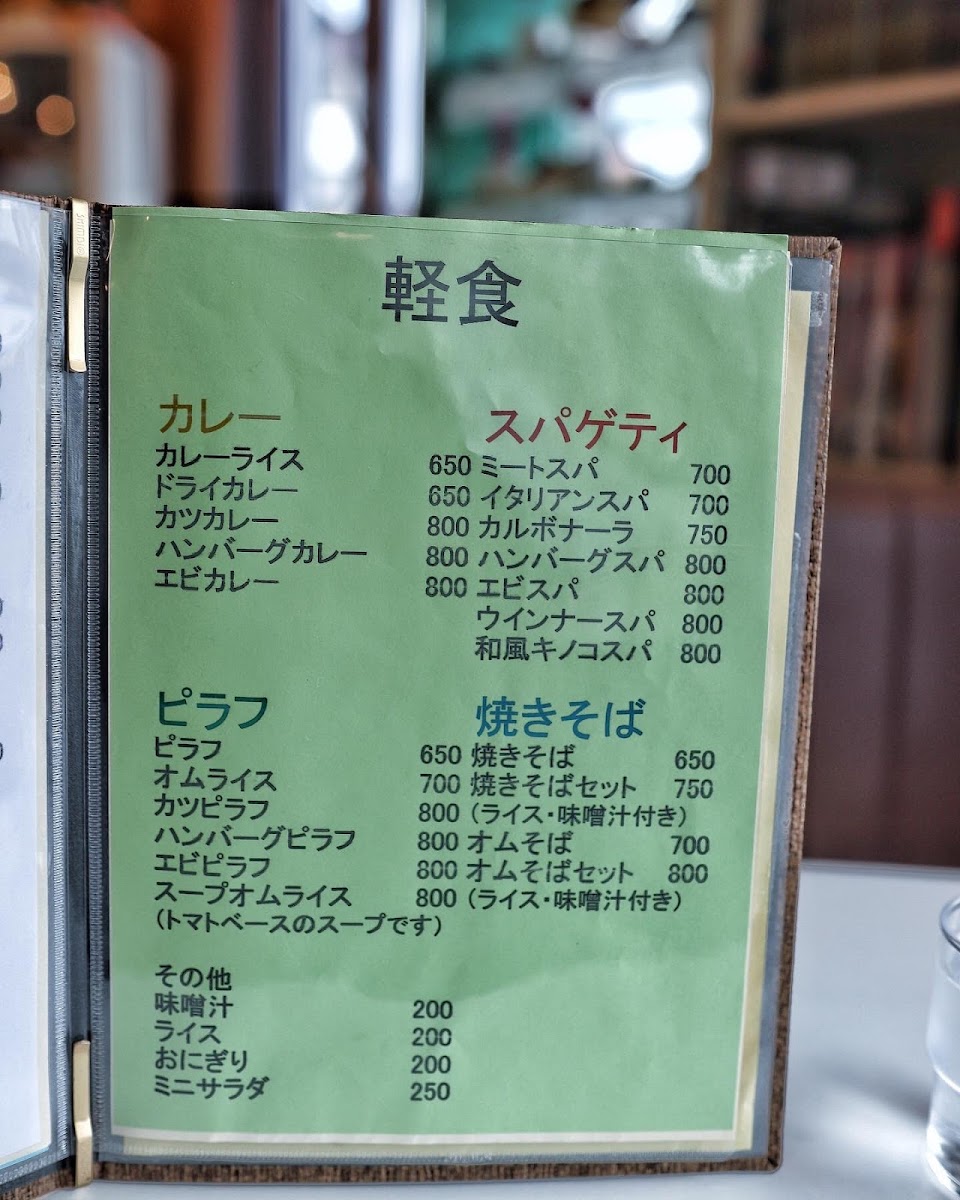 軽食
カレー
カレーライス 650
ドライカレー 650
カツカレー 800
ハンバーグカレー 800
エビカレー 800
スパゲティ
ミートスパ 700
イタリアンスパ 700
カルボナーラ 750
ハンバーグスパ 800
エビスパ 800
ウインナースパ 800
和風キノコスパ 800
ピラフ
ピラフ 650
オムライス 700
カツピラフ 800
ハンバーグピラフ 800
エビピラフ 800
スープオムライス 800
(トマトベースのスープです)
焼きそば
焼きそば 650
焼きそばセット 750
(ライス・味噌汁付き)
オムそば 700
オムそばセット 800
(ライス・味噌汁付き)
その他
味噌汁 200
ライス 200
おにぎり 200
ミニサラダ 250